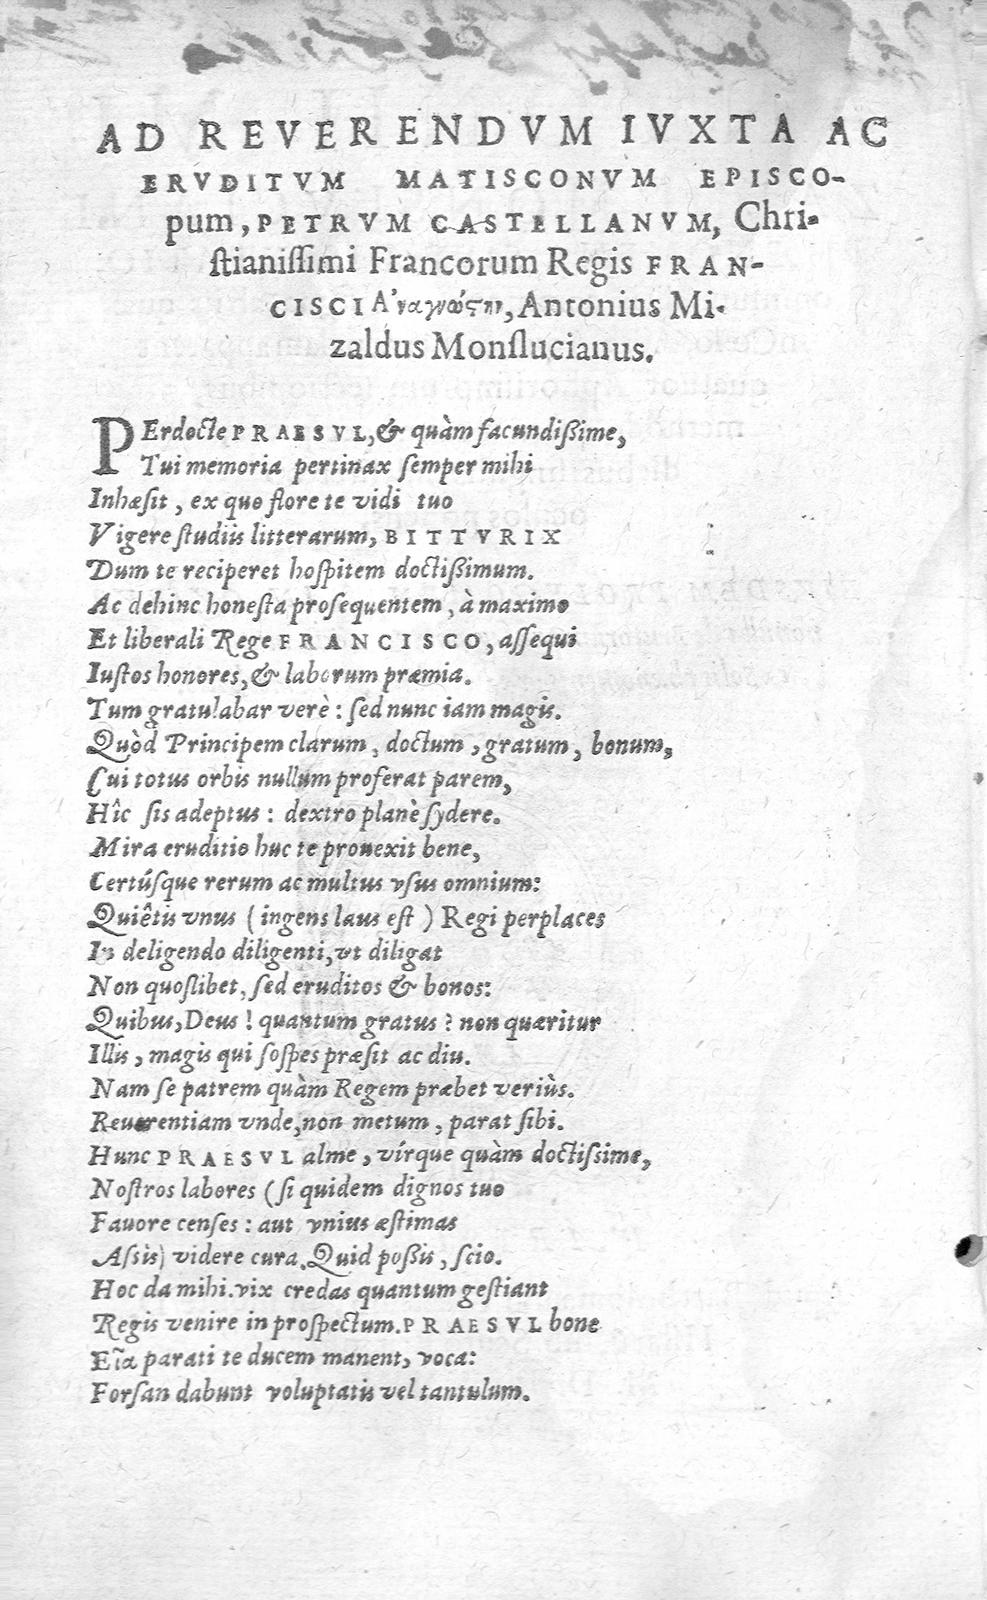 AD REVERENDVM IVXTA AC
ERVDITVM MATISCONVM EPISCO-
pum, PETRVM CASTELLANVM, Chri-
stianissimi Francorum Regis FRAN-
CISCI Ἀναγνώστην, Antonius Mi-
zaldus Monslucianus.
PErdocte PRAESVL, & quàm facundißime,
Tui memoria pertinax semper mihi
Inhæsit, ex quo flore te vidi tuo
Vigere studiis litterarum, BITTVRIX
Dum te reciperet hospitem doctißimum.
Ac dehinc honesta prosequentem, à maximo
Et liberali Rege FRANCISCO, assequi
Iustos honores, & laborum præmia.
Tum gratulabar verè: sed nunc iam magis.
Quòd Principem clarum, doctum, gratum, bonum,
Cui totus orbis nullum proferat parem,
Hîc sis adeptus: dextro planè sydere.
Mira eruditio huc te prouexit bene,
Certúsque rerum ac multus vsus omnium:
Quiêtis vnus (ingens laus est) Regi perplaces
In deligendo diligenti, vt diligat
Non quoslibet, sed eruditos & bonos:
Quibus, Deus! quantum gratus? non quæritur
Illis, magis qui sospes præsit ac diu.
Nam se patrem quàm Regem præbet veriùs.
Reuerentiam vnde, non metum, parat sibi.
Hunc PRAESVL alme, vírque quàm doctissime,
Nostros labores (si quidem dignos tuo
Fauore censes: aut vnius æstimas
Assis) videre cura. Quid poßis, scio.
Hoc da mihi. vix credas quantum gestiant
Regis venire in prospectum. PRAESVL bone
Eia parati te ducem manent, voca:
Forsan dabunt voluptatis vel tantulum.